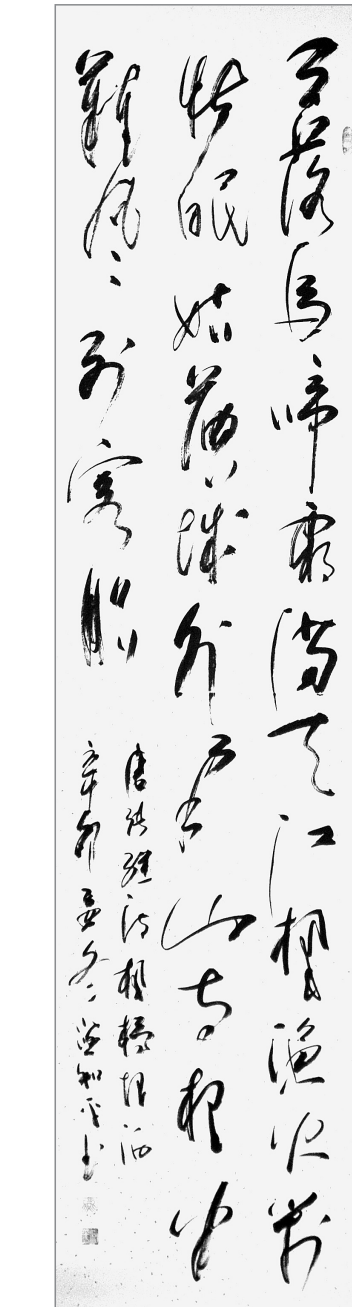 月落烏啼霜滿天江楓漁火對
愁眠姑蘇城外寒山寺夜半
鐘聲到客船
唐張繼詩楓橋夜泊
辛卯孟冬知平書